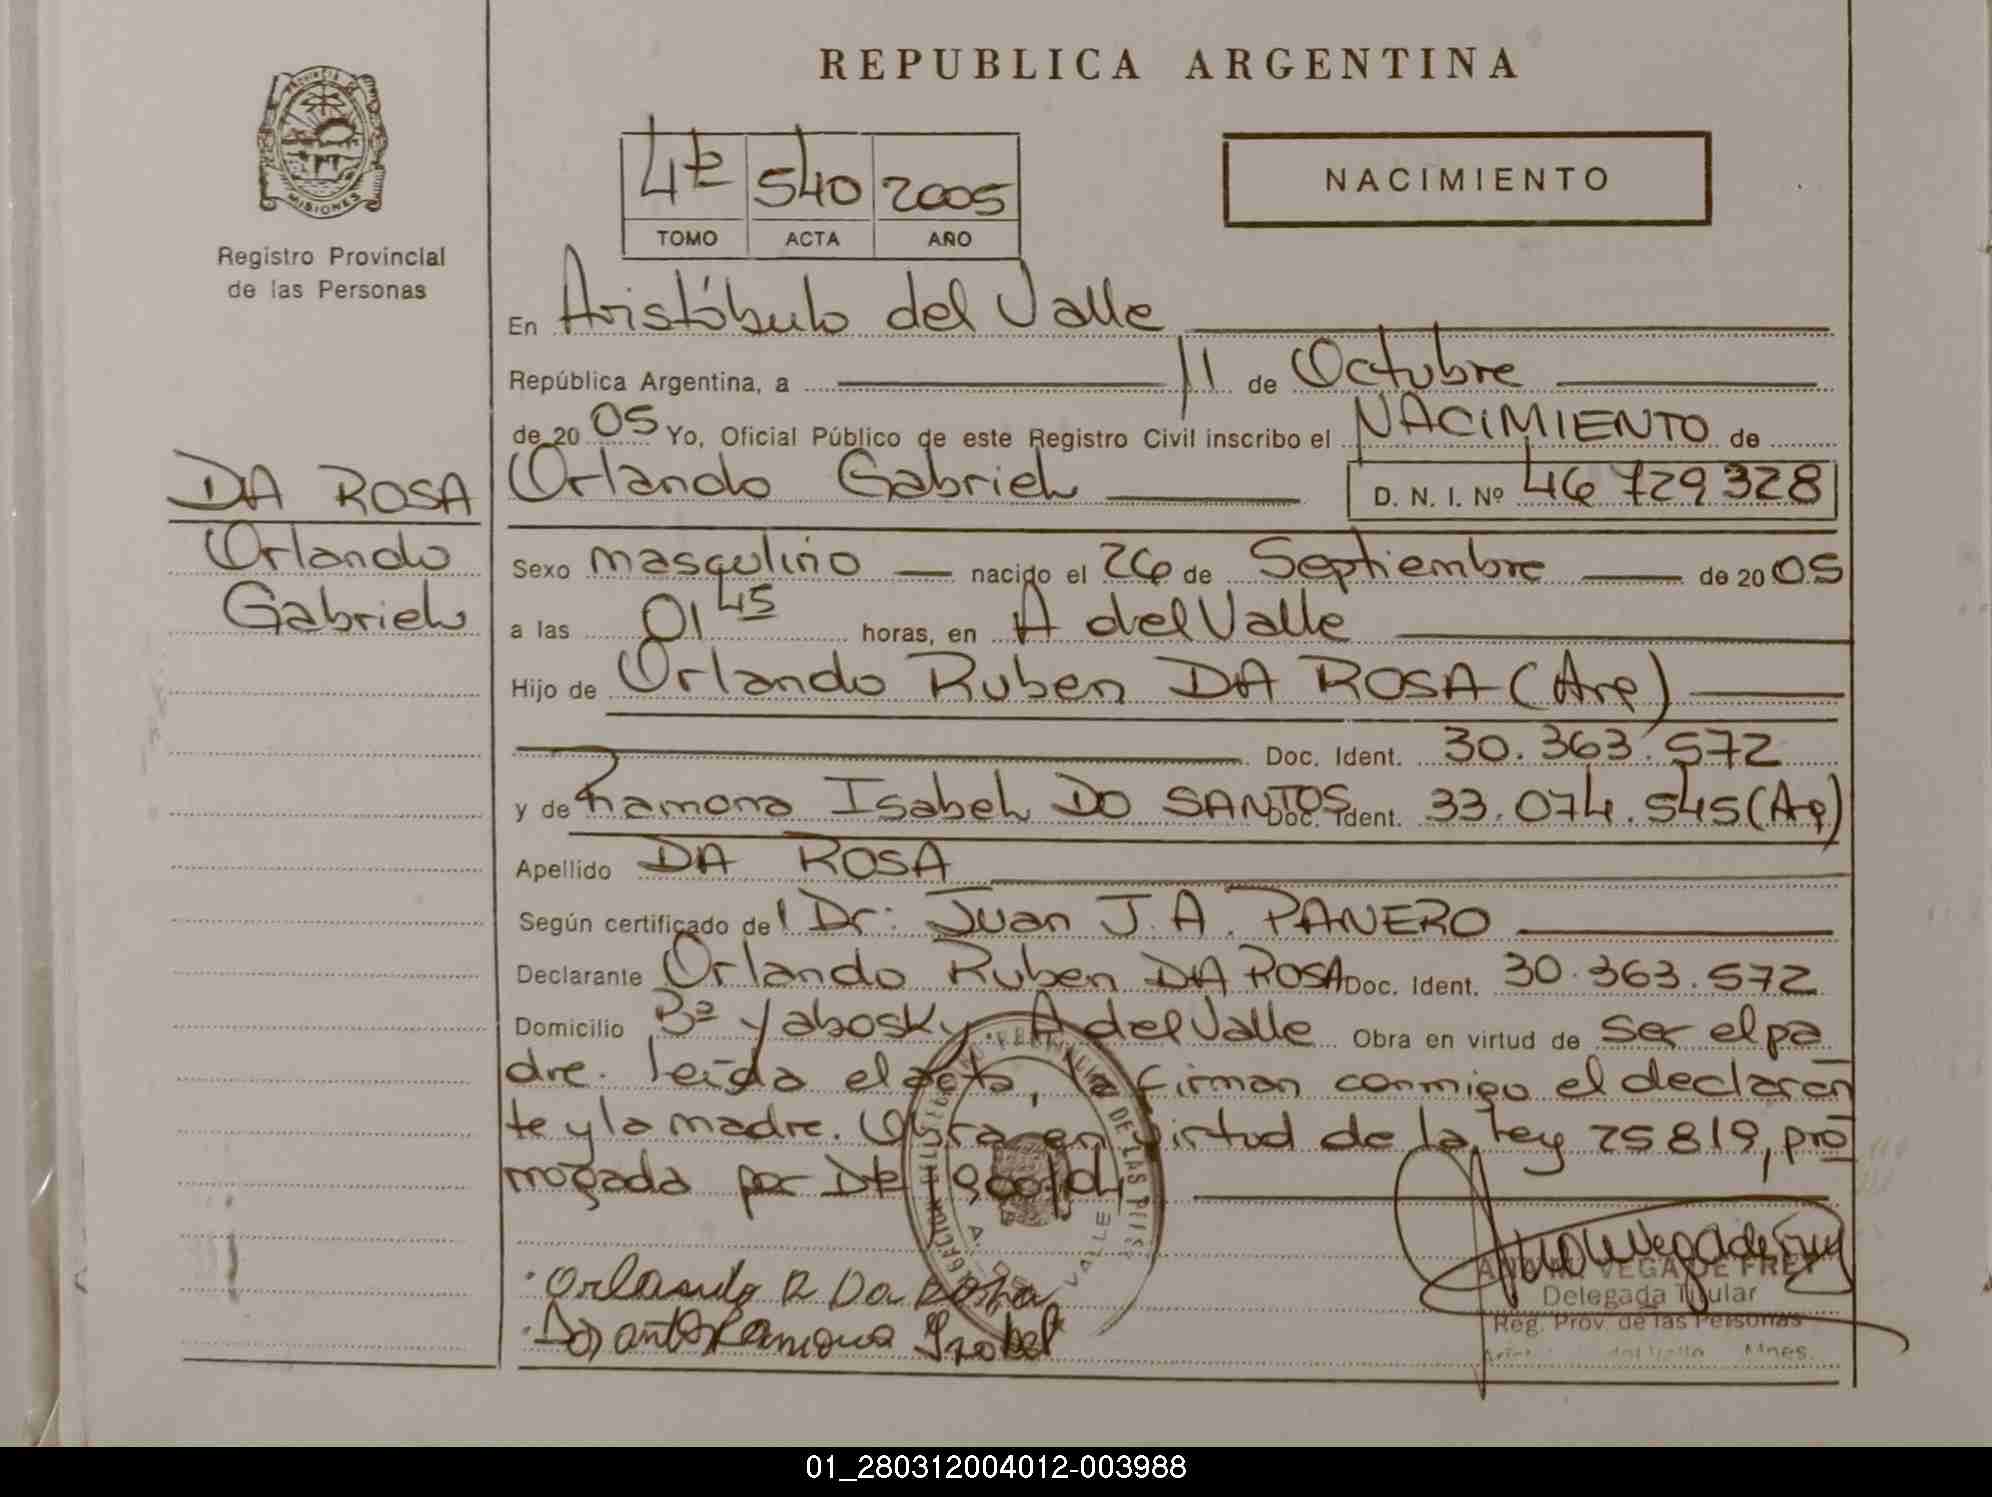 REPUBLICA ARGENTINA
PROVINCIA DE
MISIONES
Registro Provincial
de las Personas
4º 540 2005
TOMO ACTA AÑO
NACIMIENTO
En Aristóbulo del Valle
República Argentina, a 11 de Octubre
de 2005 Yo, Oficial Público de este Registro Civil inscribo el NACIMIENTO de
DA ROSA
Orlando
Gabriel
Orlando Gabriel D. N. I. Nº 46 729 328
Sexo masculino nacido el 26 de Septiembre de 2005
a las 01 45 horas, en A del Valle
Hijo de Orlando Ruben DA ROSA (Arg)
Doc. Ident. 30.363.572
y de Ramona Isabel DO SANTOS Doc. Ident. 33.074.545 (Arg)
Apellido DA ROSA
Según certificado del Dr: Juan J.A. PANERO
Declarante Orlando Ruben DA ROSA Doc. Ident. 30.363.572
Domicilio Bº Yabosky A del Valle Obra en virtud de ser el pa
dre. leída el acta, la firman conmigo el declaran
te y la madre. Obra en virtud de la ley 25819, pro
mogada por
Orlando R Da Rosa
Do santo Ramona Izabel
ANA M. VEGA DE FREY
Delegada Titular
Reg. Prov. de las Personas
del Valle Mnes.
01_280312004012-003988